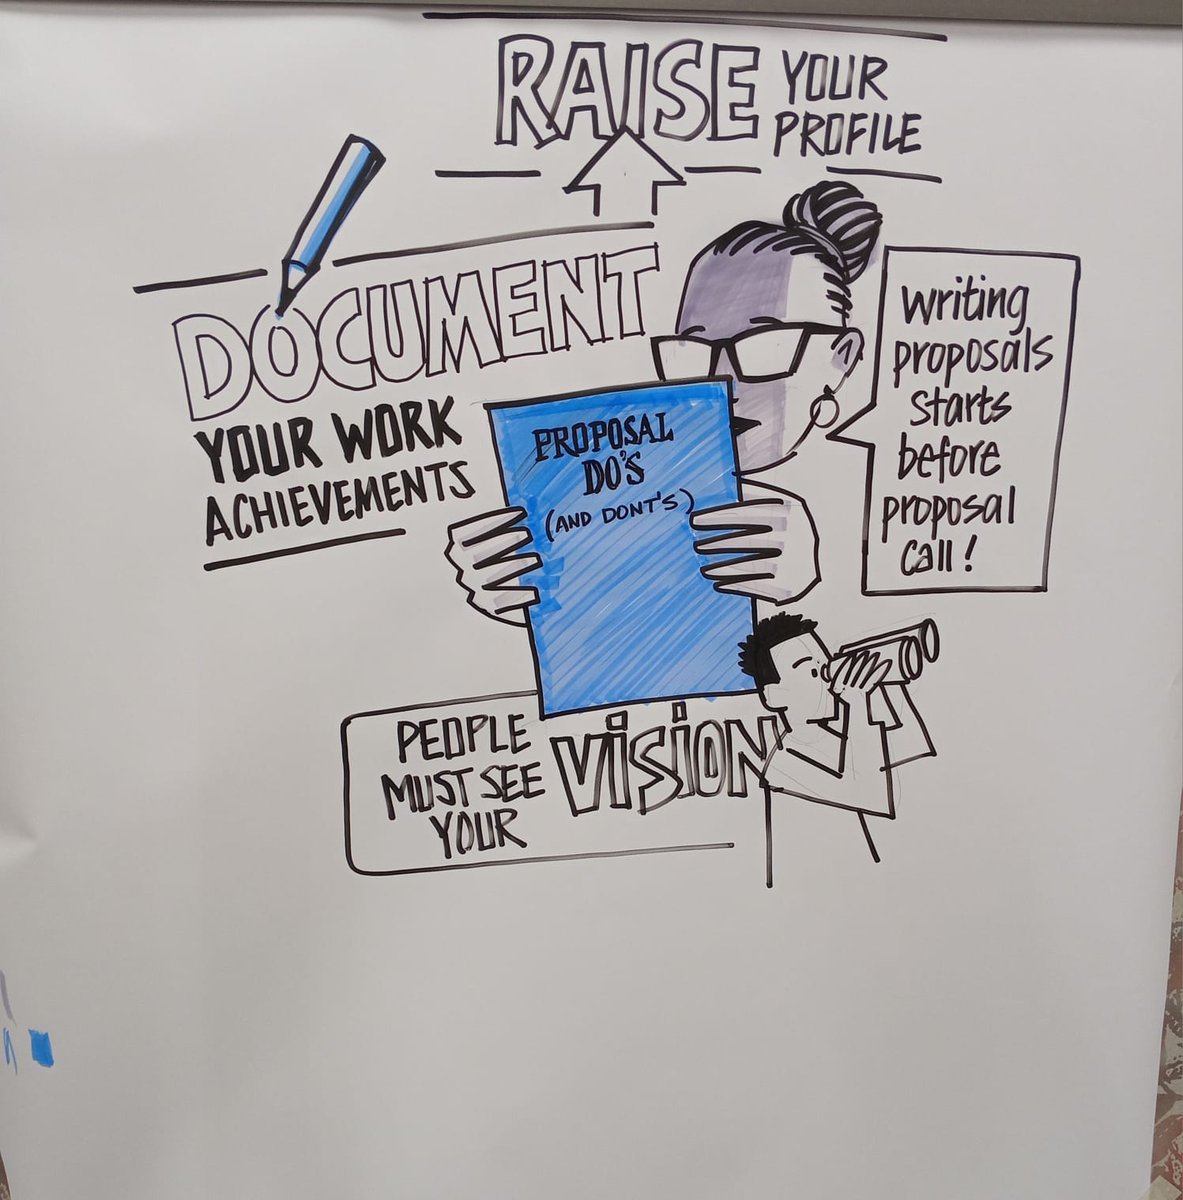 RAISE YOUR
PROFILE
DOCUMENT
YOUR WORK
ACHIEVEMENTS
PROPOSAL
DO'S
(AND DONT'S)
writing
proposals
starts
before
proposal
call!
PEOPLE
MUST SEE
YOUR
VISION